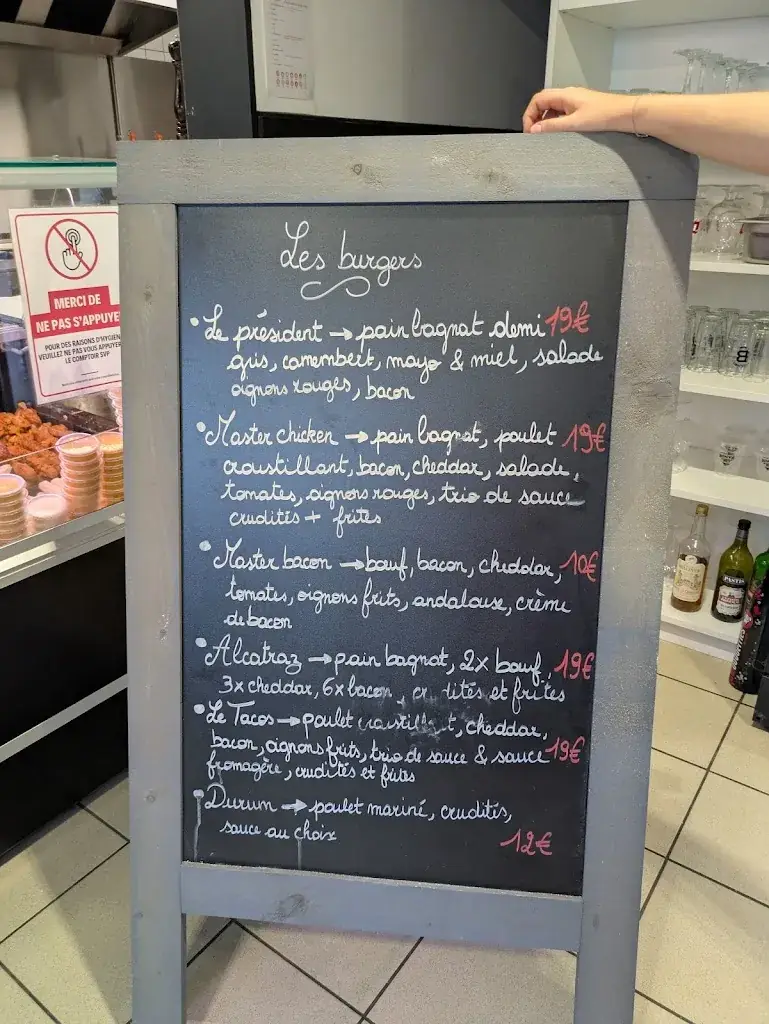 Les burgers
• Le président → pain bagnat demi 19€
gris, camembert, mayo & miel, salade
oignons rouges, bacon
• Master chicken → pain bagnat, poulet 19€
croustillant, bacon, cheddar, salade,
tomates, oignons rouges, trio de sauce
crudités + frites
• Master bacon → bœuf, bacon, cheddar, 10€
tomates, oignons frits, andalouse, crème
de bacon
• Alcatraz → pain bagnat, 2x bœuf, 19€
3x cheddar, 6x bacon, cr dités et frites
• Le Tacos → poulet croustill t, cheddar,
bacon, oignons frits, trio de sauce & sauce 19€
fromagère, crudités et frites
• Durum → poulet mariné, crudités,
sauce au choix
12€
MERCI DE
NE PAS S'APPUYE
POUR DES RAISONS D'HYGIEN
VEUILLEZ NE PAS VOUS APPUYER
LE COMPTOIR SVP